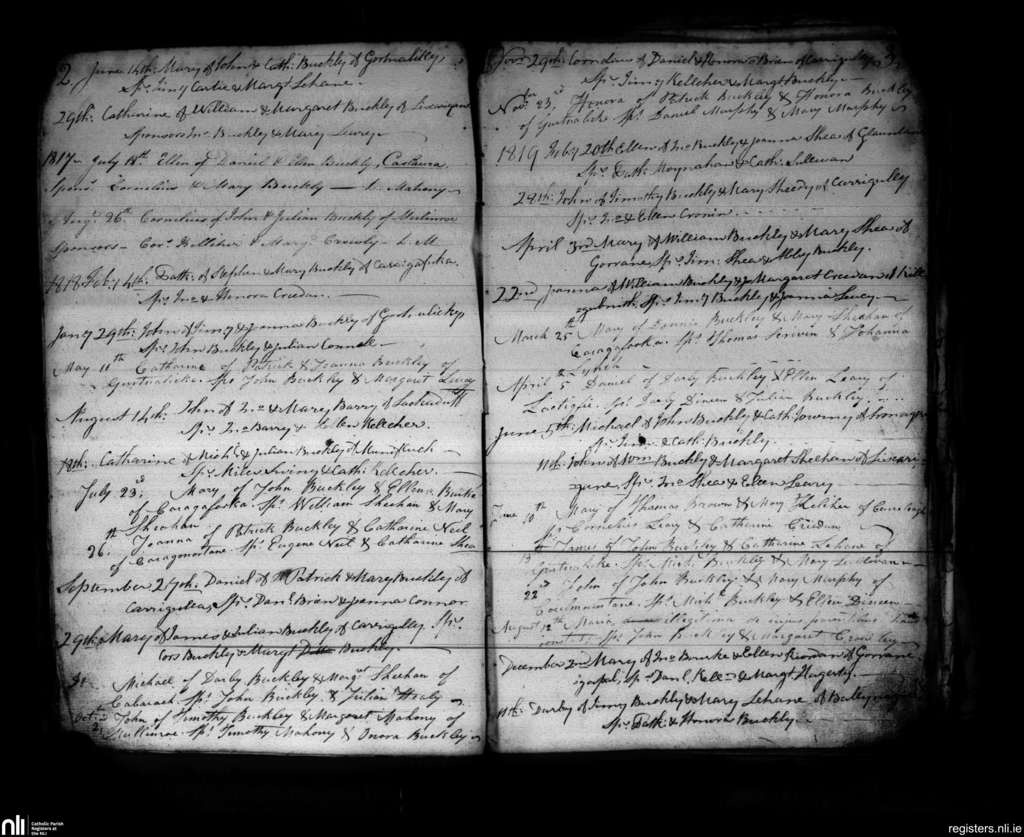 2 June 14th: Mary of John & Cath: Buckley of Gortnalicky
Sp:s Timy Cartie & Margt Lehane.
29th: Catherine of William & Margaret Buckley of
Sponsors Jno Buckley & Mary
1817 July 18th. Ellen of Daniel & Ellen Buckly,
Spons: Cornelius & Mary Buckly — D. Mahony
Augt 26th Cornelius of John & Julian Buckley of
Sponsors – Cors Kelliher & Margt Crowly –
1818 Feb: 14th: Dath: of Stephen & Mary Buckley of Caragafooka.
Sp:s Jno & Honora Creedan. —
Jany 29th: John of Timy & Joanna Buckley of Gortnalicky
Sp:s John Buckley & Julian Connell —
May 11th Catharine of Patrick & Joanna Buckley of
Gurtnalicke. Sps John Buckley & Margaret Lucy
August 14th: John of Jno & Mary Barry of
Sp:s Jno Barry & Kelleher.
18th: Catharine of Michl & Julian Buckley of
Sp:s Miles Swiny & Cath: Kelleher. —
July 23d; Mary of John Buckley & Ellen Burke
of Caragafooka. Sps William Sheehan & Mary
Sheehan
26th Joanna of Patrick Buckley & Catharine Neil
of . Sps Eugene Neil & Catharine Shea
September 27th: Daniel of Patrick & Mary Buckley of
Sp:s Danl Brien & Joanna Connor
29th: Mary of James & Julian Buckley of Carrigully Sp:s
Cors Buckley & Margt Buckley. —
Michael of Darby Buckley & Margt Sheehan of
Sps John Buckley & Julian Healy
Octr John of Timothy Buckley & Margaret Mahony of
Sps Timothy Mahony & Onora Buckley
Novr 29th: Cornelius of Daniel & Honora Brien of 3
Sp:s Timy Kelleher & Margt Buckley —
Novr 23d Honora of Patrick Buckley & Honora Buckley
of Gurtnalick Sps Daniel Murphy & Mary Murphy
1819 Feby 20th Ellen of Jno Buckley & Joanna Shea of
Sp:s Dath: Moynahan & Cath: Sullivan
29th: John of Timothy Buckley & Mary Sheedy of Carrigully
Sp:s Jno & Ellen Cronin
April 3rd Mary of William Buckley & Mary Shea of
Gorrane Sp:s Tim: Shea & Abby Buckley.
22nd, Joanna of William Buckley & Margaret Creedan of
Sp:s Timy Buckley & Joannia Lucy —
March 25th Mary of Dennis Buckley & Mary Sheehan of
Caragafooka. Sps Thomas & Johanna
Lynch
April 5 Daniel of Darby Buckley & Ellen Leary of
Sps Darby Dineen & Julian Buckley
June 5th: Michael of John Buckley & Cath: Twomey of
Sp:s Tim: & Cath: Buckley.
11th: John of Wm Buckley & Margaret Sheehan of
Sp:s Jno Shea & Ellen Leary —
June 10th Mary of Thomas Brown & Mary Kelleher of
Sps Cornelius Leary & Catharine Creedan
James of John Buckley & Catharine Lehane of
Gurtnalike. Sps Michl Buckley & Mary Sullivan
22d John of John Buckley & Mary Murphy of
Sps Michl Buckley & Ellen Dineen
August 12th Maria illegitima
Sps John Buckley & Margaret Crowley
December 2nd Mary of Jno Bourke & Ellen Riordan of Gorrane
Sp:s Danl Kell: & Margt Hagerty.
11th: Darby of Timy Buckley & Mary Lehane of
Sp:s Dath: & Honora Buckley. —
nli Catholic Parish
Registers at
the NLI
registers.nli.ie